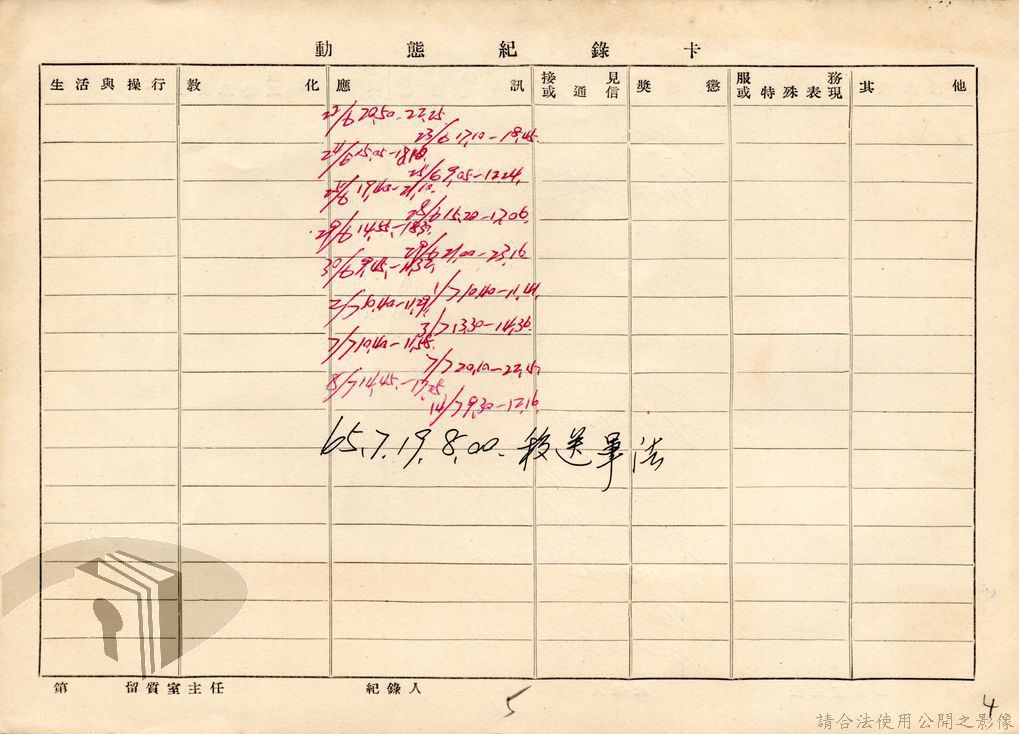 動態紀錄卡
生活與操行 教化 應訊 接見或通信 獎懲 服務或特殊表現 其他
22/6 20,50-22,25.
23/6 17,10-18,45.
24/6 15,05-
25/6 9,05-12,24,
19,40-21,10.
28/6 15,20-17,06.
29/6 14,55,-
29/6 21,00-23,16.
30/6 9,45,-11,30,
1/7 10,40-11,44,
2/7 10,40-11,29,
3/7 13,30-14,36.
7/7 10,40-11,55.
7/7 20,10-22,45,
8/7 14,45,-17,25,
14/7 9,30-12,16.
65,7,19,8,00.移送軍法
第 留質室主任 紀錄人
5 4
請合法使用公開之影像